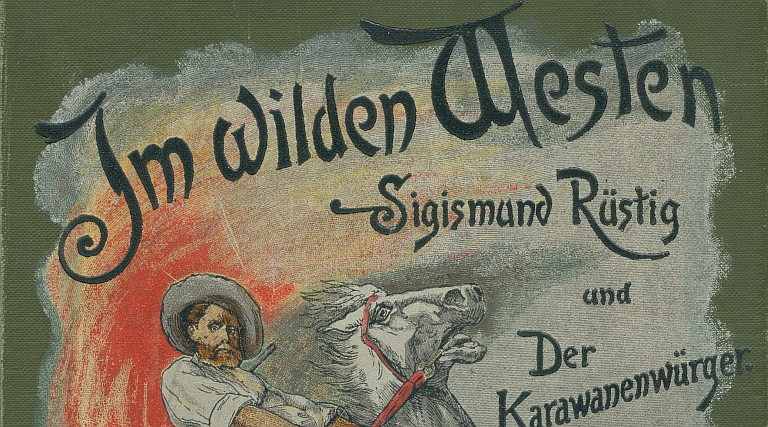 Im wilden Westen
Sigismund Rüstig
und
Der
Karawanenwürger.